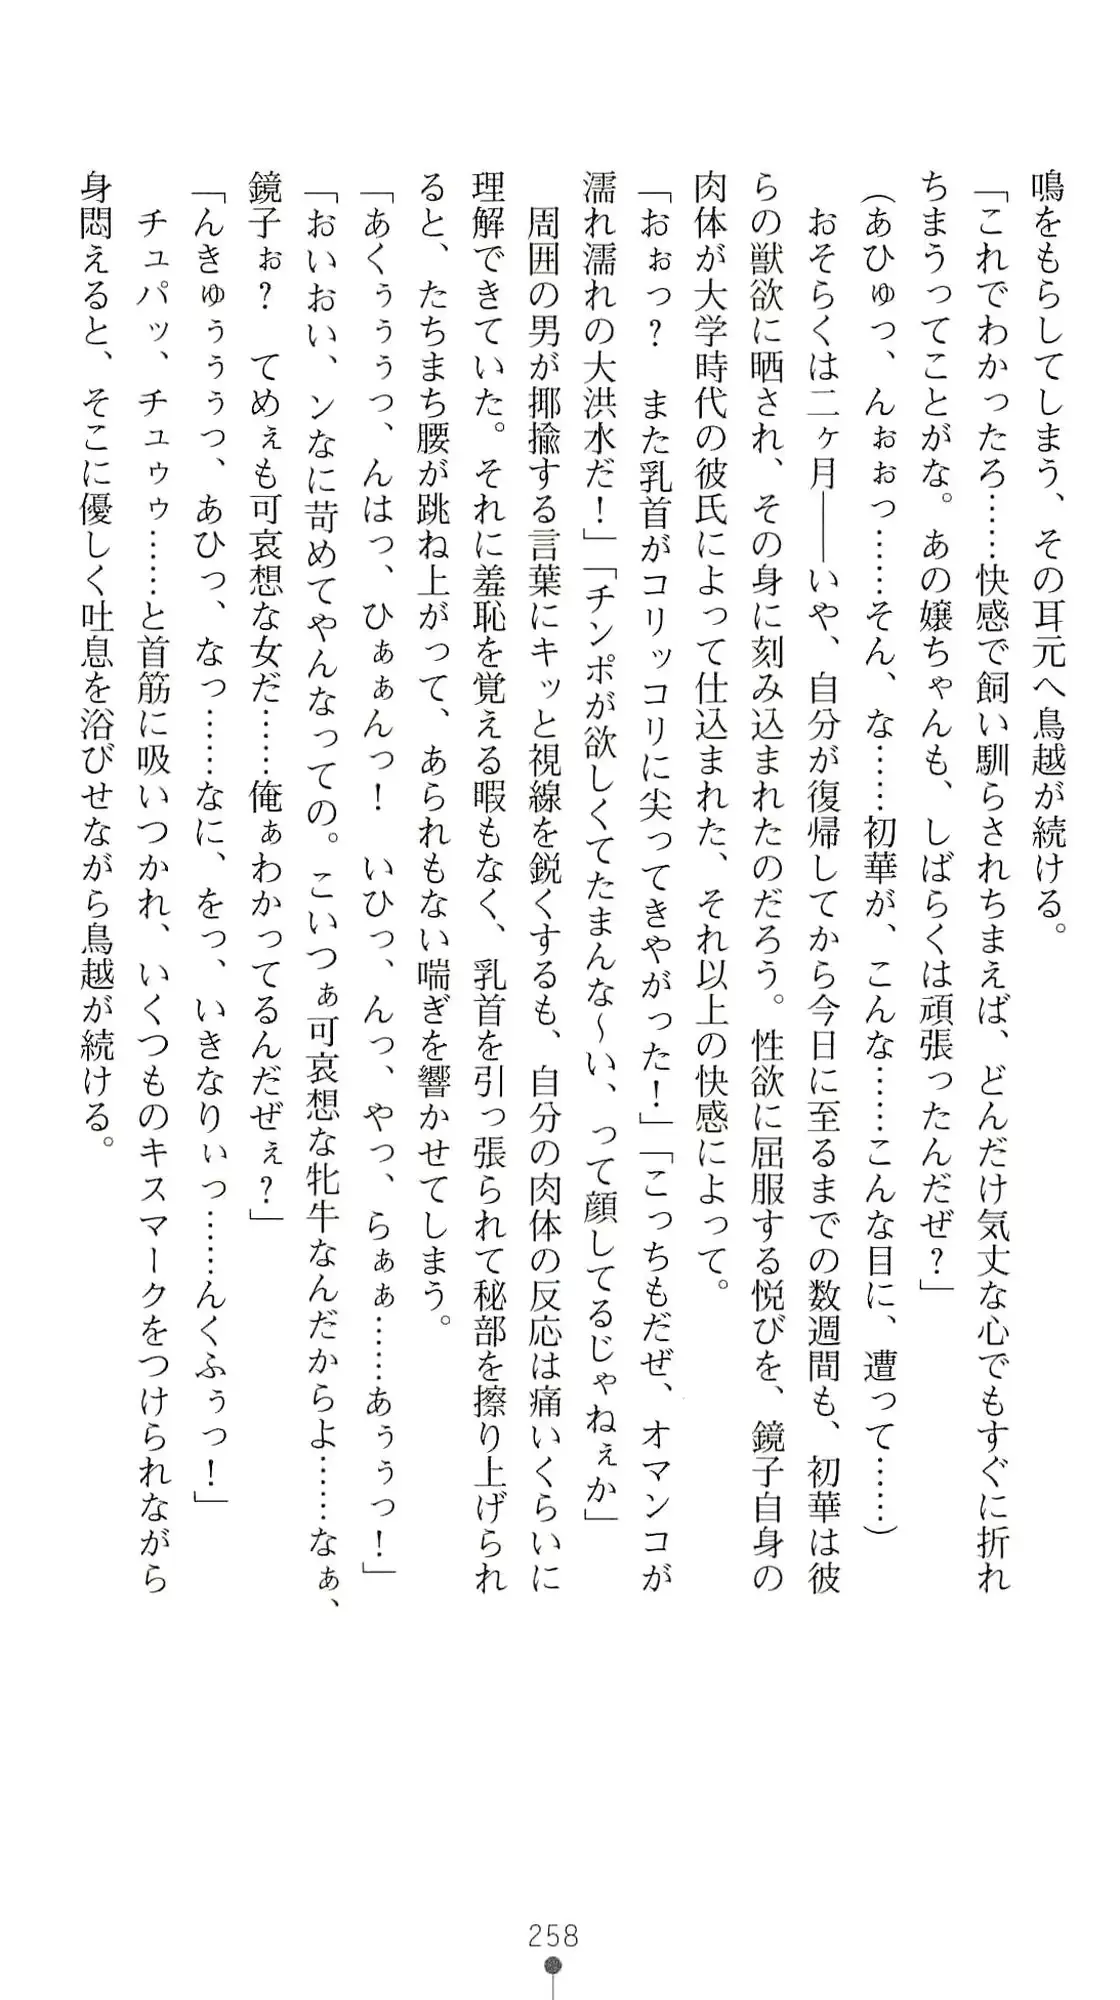 鳴をもらしてしまう、その耳元へ鳥越が続ける。
「これでわかったろ……快感で飼い馴らされちまえば、どんだけ気丈な心でもすぐに折れ
ちまうってことがな。あの嬢ちゃんも、しばらくは頑張ったんだぜ？」
（あひゅっ、んぉぉっ……そん、な……初華が、こんな……こんな目に、遭って……）
おそらくは二ヶ月――いや、自分が復帰してから今日に至るまでの数週間も、初華は彼
らの獣欲に晒され、その身に刻み込まれたのだろう。性欲に屈服する悦びを、鏡子自身の
肉体が大学時代の彼氏によって仕込まれた、それ以上の快感によって。
「おぉっ？　また乳首がコリッコリに尖ってきやがった！」「こっちもだぜ、オマンコが
濡れ濡れの大洪水だ！」「チンポが欲しくてたまんな～い、って顔してるじゃねぇか」
周囲の男が揶揄する言葉にキッと視線を鋭くするも、自分の肉体の反応は痛いくらいに
理解できていた。それに羞恥を覚える暇もなく、乳首を引っ張られて秘部を擦り上げられ
ると、たちまち腰が跳ね上がって、あられもない喘ぎを響かせてしまう。
「あくぅぅぅっ、んはっ、ひぁぁんっ！　いひっ、んっ、やっ、らぁぁ……あぅぅっ！」
「おいおい、ンなに苛めてやんなっての。こいつぁ可哀想な牝牛なんだからよ……なぁ、
鏡子ぉ？　てめぇも可哀想な女だ……俺ぁわかってるんだぜぇ？」
「んきゅぅぅぅっ、あひっ、なっ……なに、をっ、いきなりぃっ……んくふぅっ！」
チュパッ、チュゥゥ……と首筋に吸いつかれ、いくつものキスマークをつけられながら
身悶えると、そこに優しく吐息を浴びせながら鳥越が続ける。
258